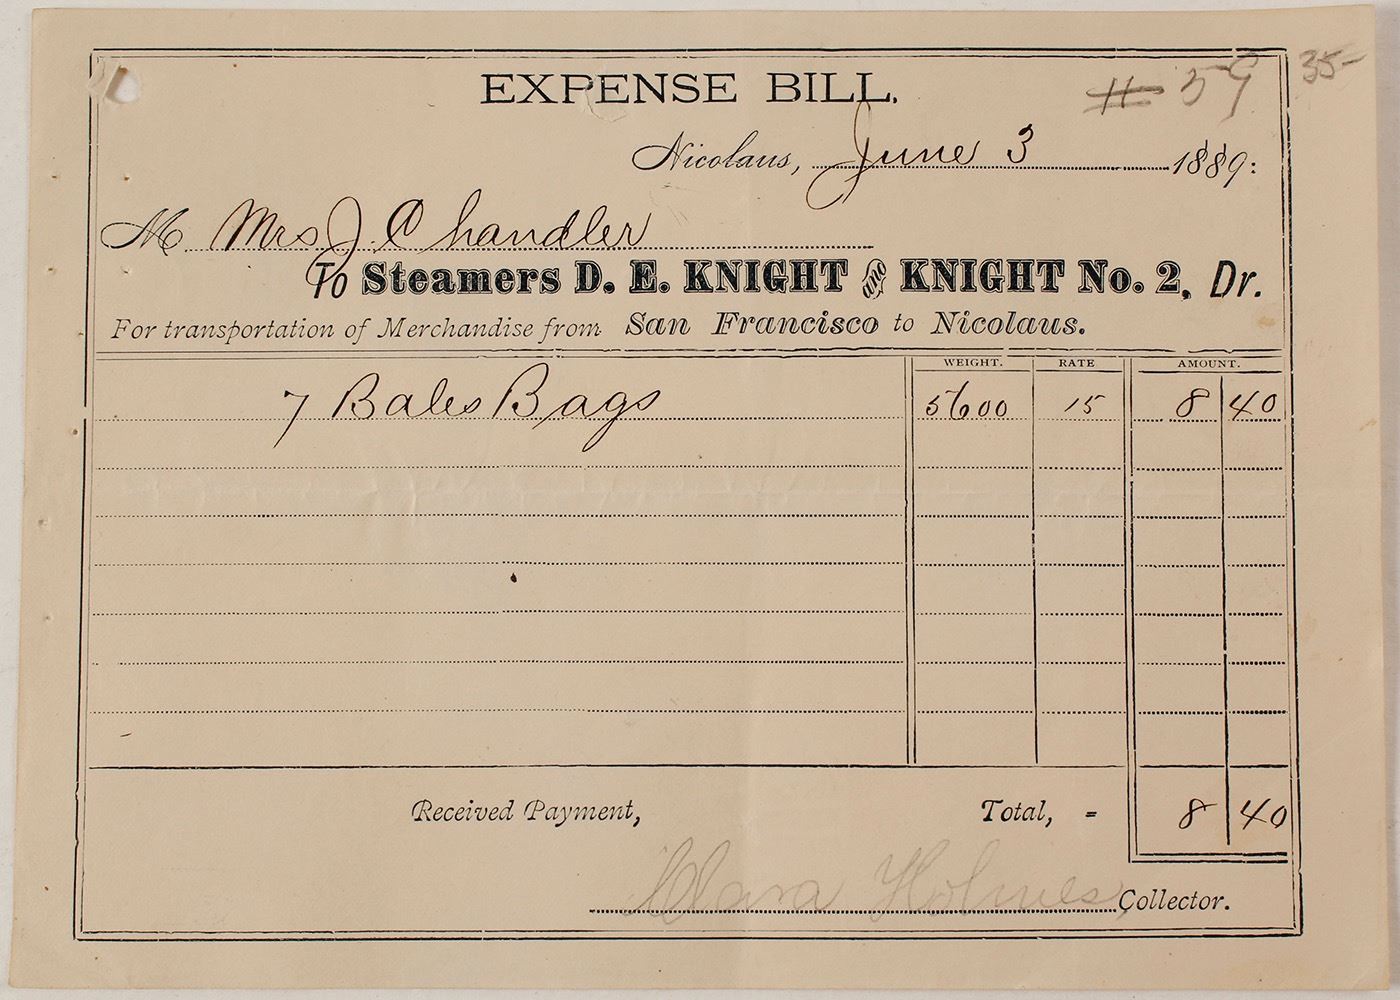 EXPENSE BILL.
# 59
35-
Nicolaus, June 3 1889:
M Mrs J. Chandler
To Steamers D. E. KNIGHT and KNIGHT No. 2, Dr.
For transportation of Merchandise from San Francisco to Nicolaus.
WEIGHT. RATE AMOUNT.
7 Bales Bags 5600 15 8 40
Received Payment, Total, = 8 40
Clara Holmes, Collector.